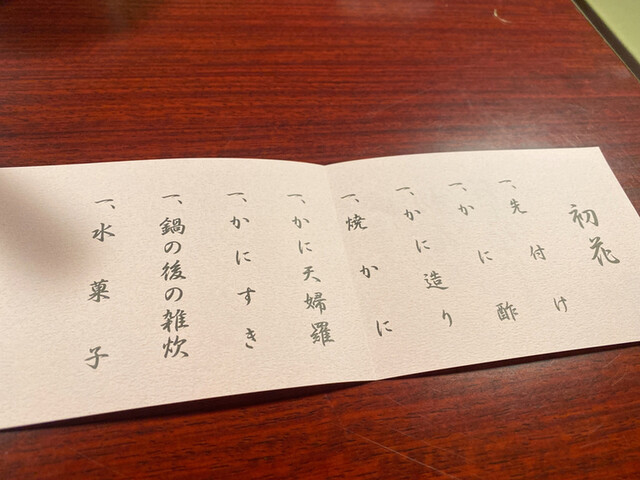 初花
一、先付け
一、かに酢
一、かに造り
一、焼かに
一、かに天婦羅
一、かにすき
一、鍋の後の雑炊
一、水菓子